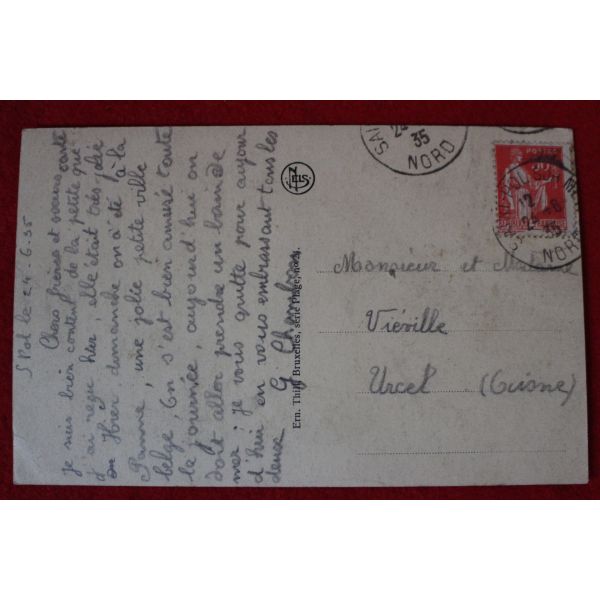 S Pol le 24-6-35
Chers frères et sœurs
je suis bien content de la petite carte que
j'ai reçu hier, elle était très jolie
Hier dimanche on a été à la
Panne, une jolie petite ville
belge, On s'est bien amusé toute
la journée, aujourd'hui on
doit aller prendre un bain de
mer; je vous quitte pour aujour
d'hui en vous embrassant tous les
deux
Ern. Thill, Bruxelles, série Plage, nord.
35
NORD
POSTES
12
24-6
35
NORD
Monsieur et Madame
Viéville
Urcel (Aisne)